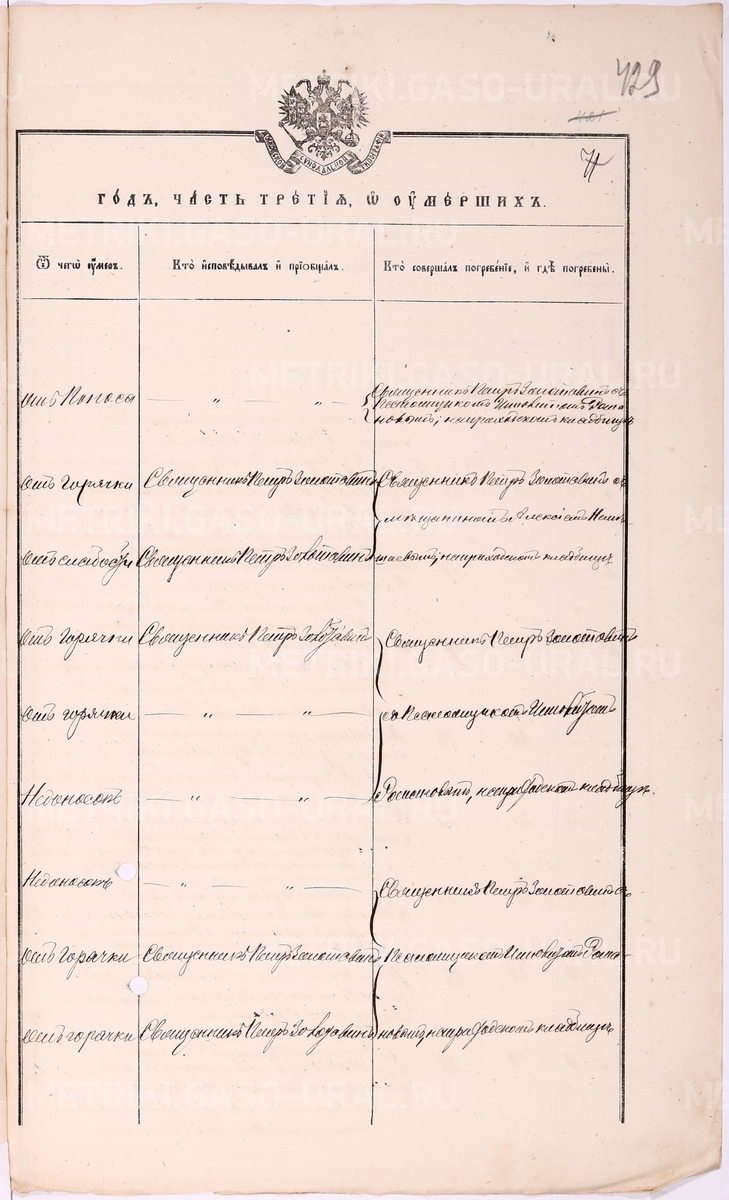 429
Годъ, часть третїѧ, ѿ оумершихъ.
Ѿ чегѡ оумеръ.
Кто исповѣдывалъ и прїобщалъ.
Кто совершалъ погребенїе, и гдѣ погребены.
Отъ Поноса — " — " — Священникъ Петръ Золотавинъ съ
Псаломщикомъ Рома
новымъ, на приходскомъ кладбищѣ
Отъ горячки Священникъ Петръ Золотавинъ Священникъ Петръ Золотавинъ съ
мѣщаниномъ Алексѣемъ
Отъ слабости Священникъ Петръ Золотавинъ на приходскомъ кладбищѣ
Отъ горячки Священникъ Петръ Золотавинъ Священникъ Петръ Золотавинъ
Отъ горячки — " — " — съ Псаломщикомъ
Недоносокъ — " — " — Романовымъ, на приходскомъ кладбищѣ.
Недоносокъ — " — " — Священникъ Петръ Золотавинъ съ
Отъ горячки Священникъ Петръ Золотавинъ Псаломщикомъ Рома-
Отъ горячки Священникъ Петръ Золотавинъ новымъ, на приходскомъ кладбищѣ
METRIKI.GASO-URAL.RU